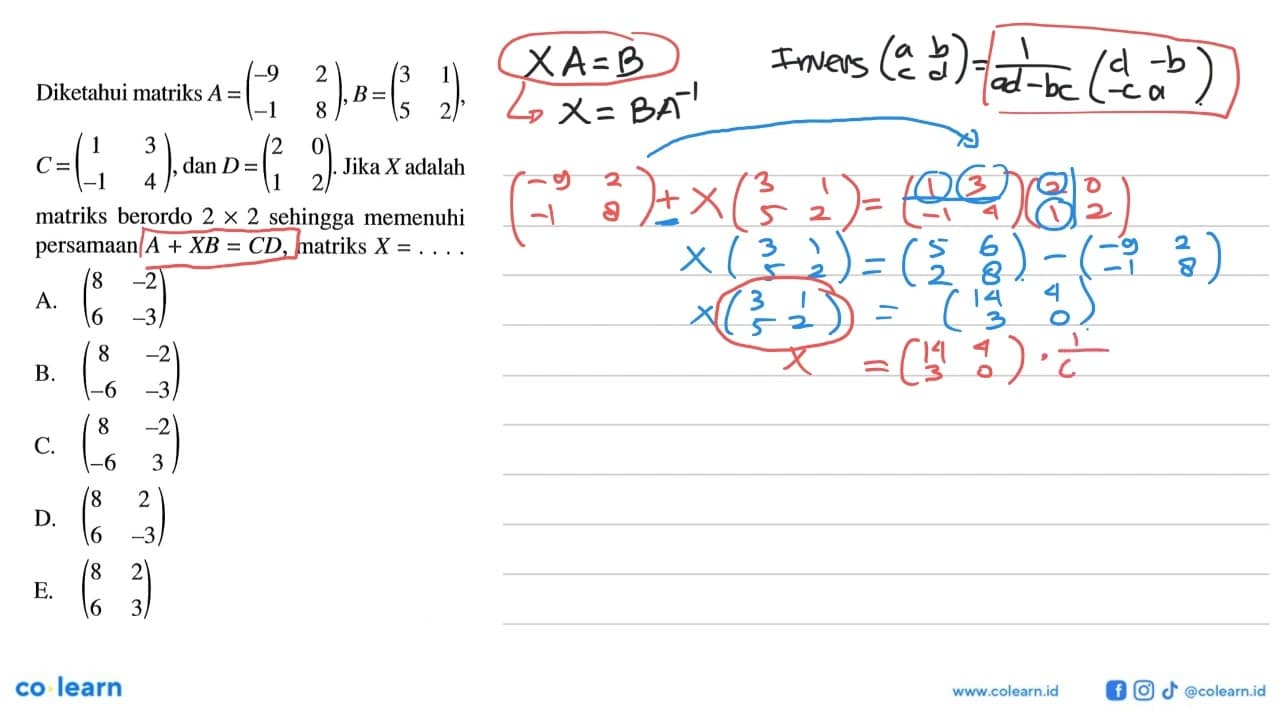 Diketahui matriks A = (-9 2 -1 8), B = (3 1 5 2),
C = (1 3 -1 4), dan D = (2 0 1 2). Jika X adalah
matriks berordo 2 × 2 sehingga memenuhi
persamaan A + XB = CD, matriks X = . . . .
A. (8 -2 6 -3)
B. (8 -2 -6 -3)
C. (8 -2 -6 3)
D. (8 2 6 -3)
E. (8 2 6 3)
XA = B
X = BA⁻¹
Invers (a b c d) = 1/ad-bc (d -b -c a)
(-9 2 -1 8) + X (3 1 5 2) = (1 3 -1 4) (2 0 1 2)
X (3 1 5 2) = (5 6 2 8) - (-9 2 -1 8)
X (3 1 5 2) = (14 4 3 0)
X = (14 4 3 0) . 1/
co learn
www.colearn.id
@colearn.id